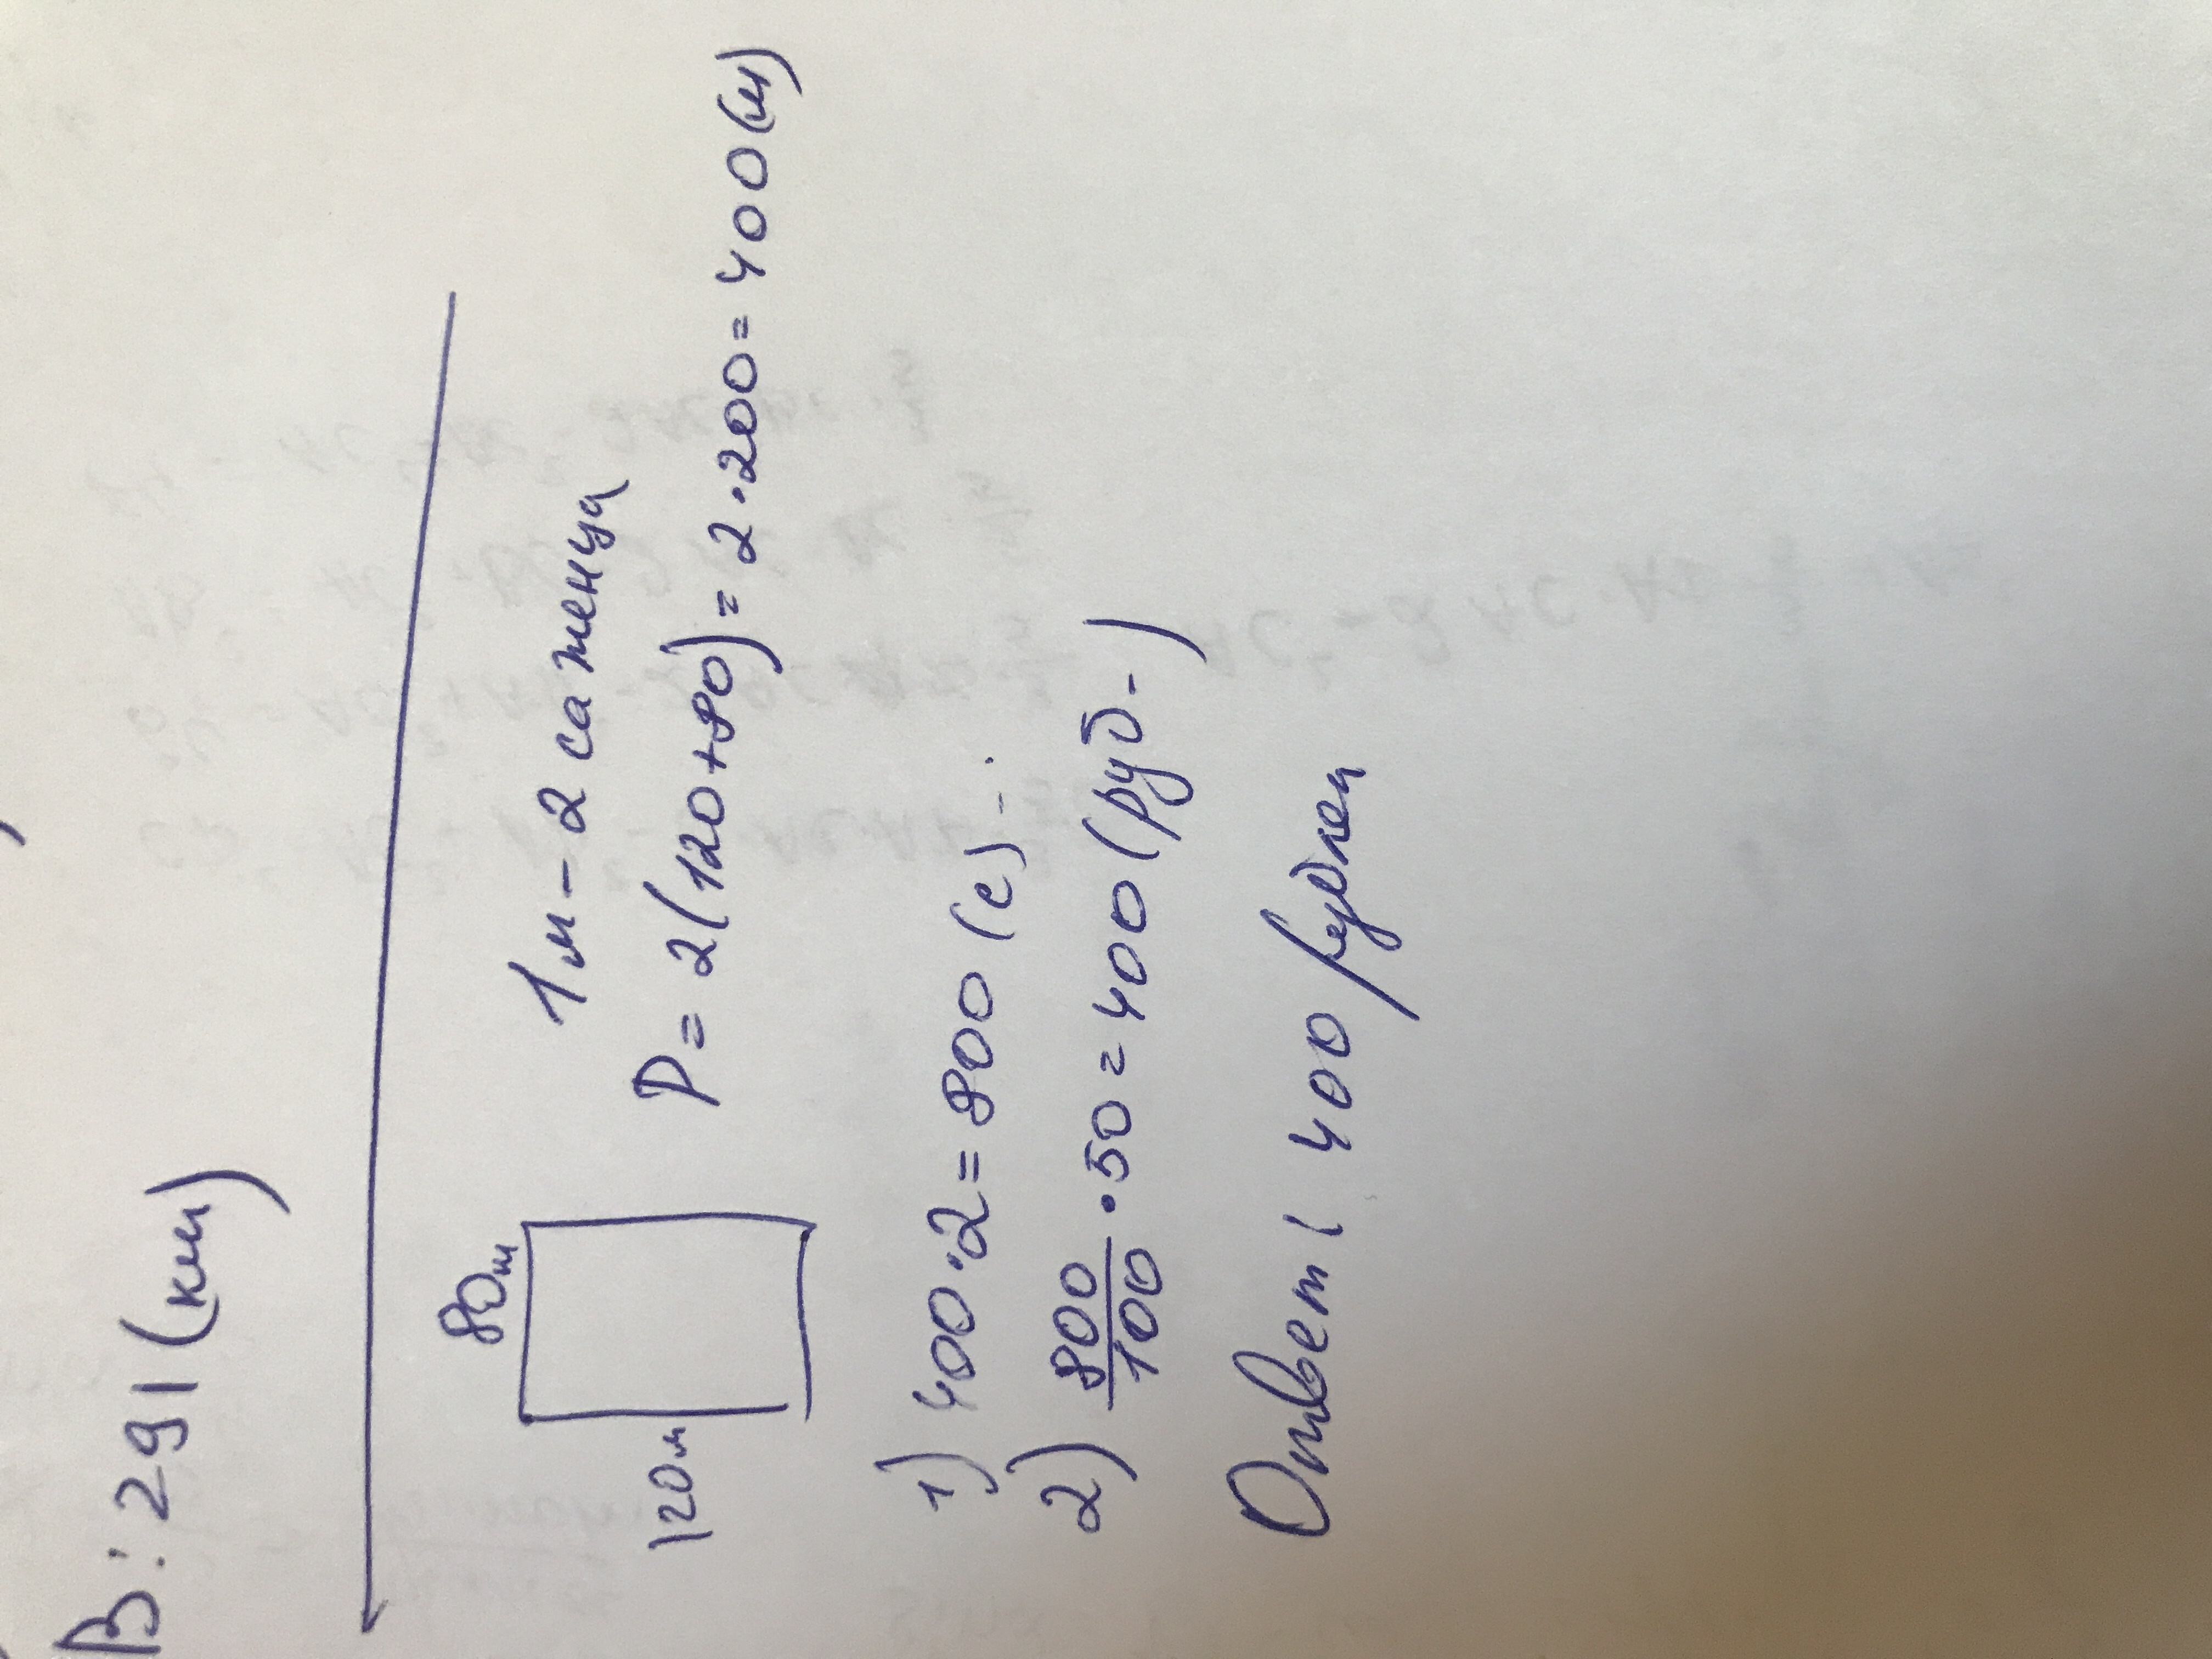 В: 291 (км)
1 м - 2 саженца
80м
120м
P = 2(120+80) = 2·200 = 400(м)
1) 400·2 = 800 (с) - .
2) 800/100 · 50 = 400 (руб-)
Ответ 400 рублей